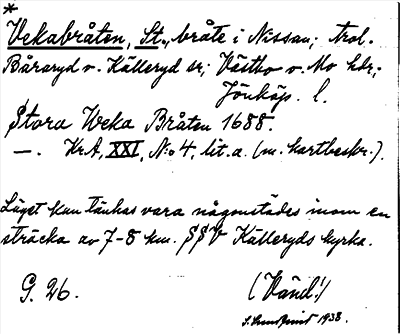 *
Vekabråten, St., bråte i Nissan; trol.
Båraryd o. Källeryd sr; Västbo o. Mo hdr;
Jönköp. l.
Stora Weka Bråten 1688.
—. KrA, XXI, N:o 4, lit. a. (m. kartbeskr.).
Läget kan tänkas vara någonstädes inom en
sträcka av 7-8 km. SSV Källeryds kyrka.
G. 26. (Vänd!)
1938.